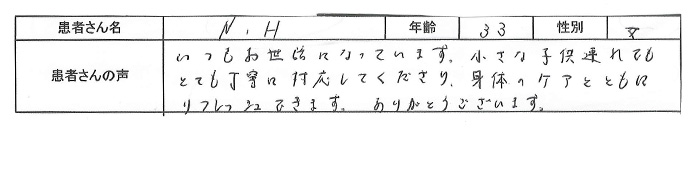 患者さん名 N.H 年齢 33 性別 女
患者さんの声
いつもお世話になっています。小さな子供連れでも
とても丁寧に対応してくださり、身体のケアとともに
リフレッシュできます。ありがとうございます。